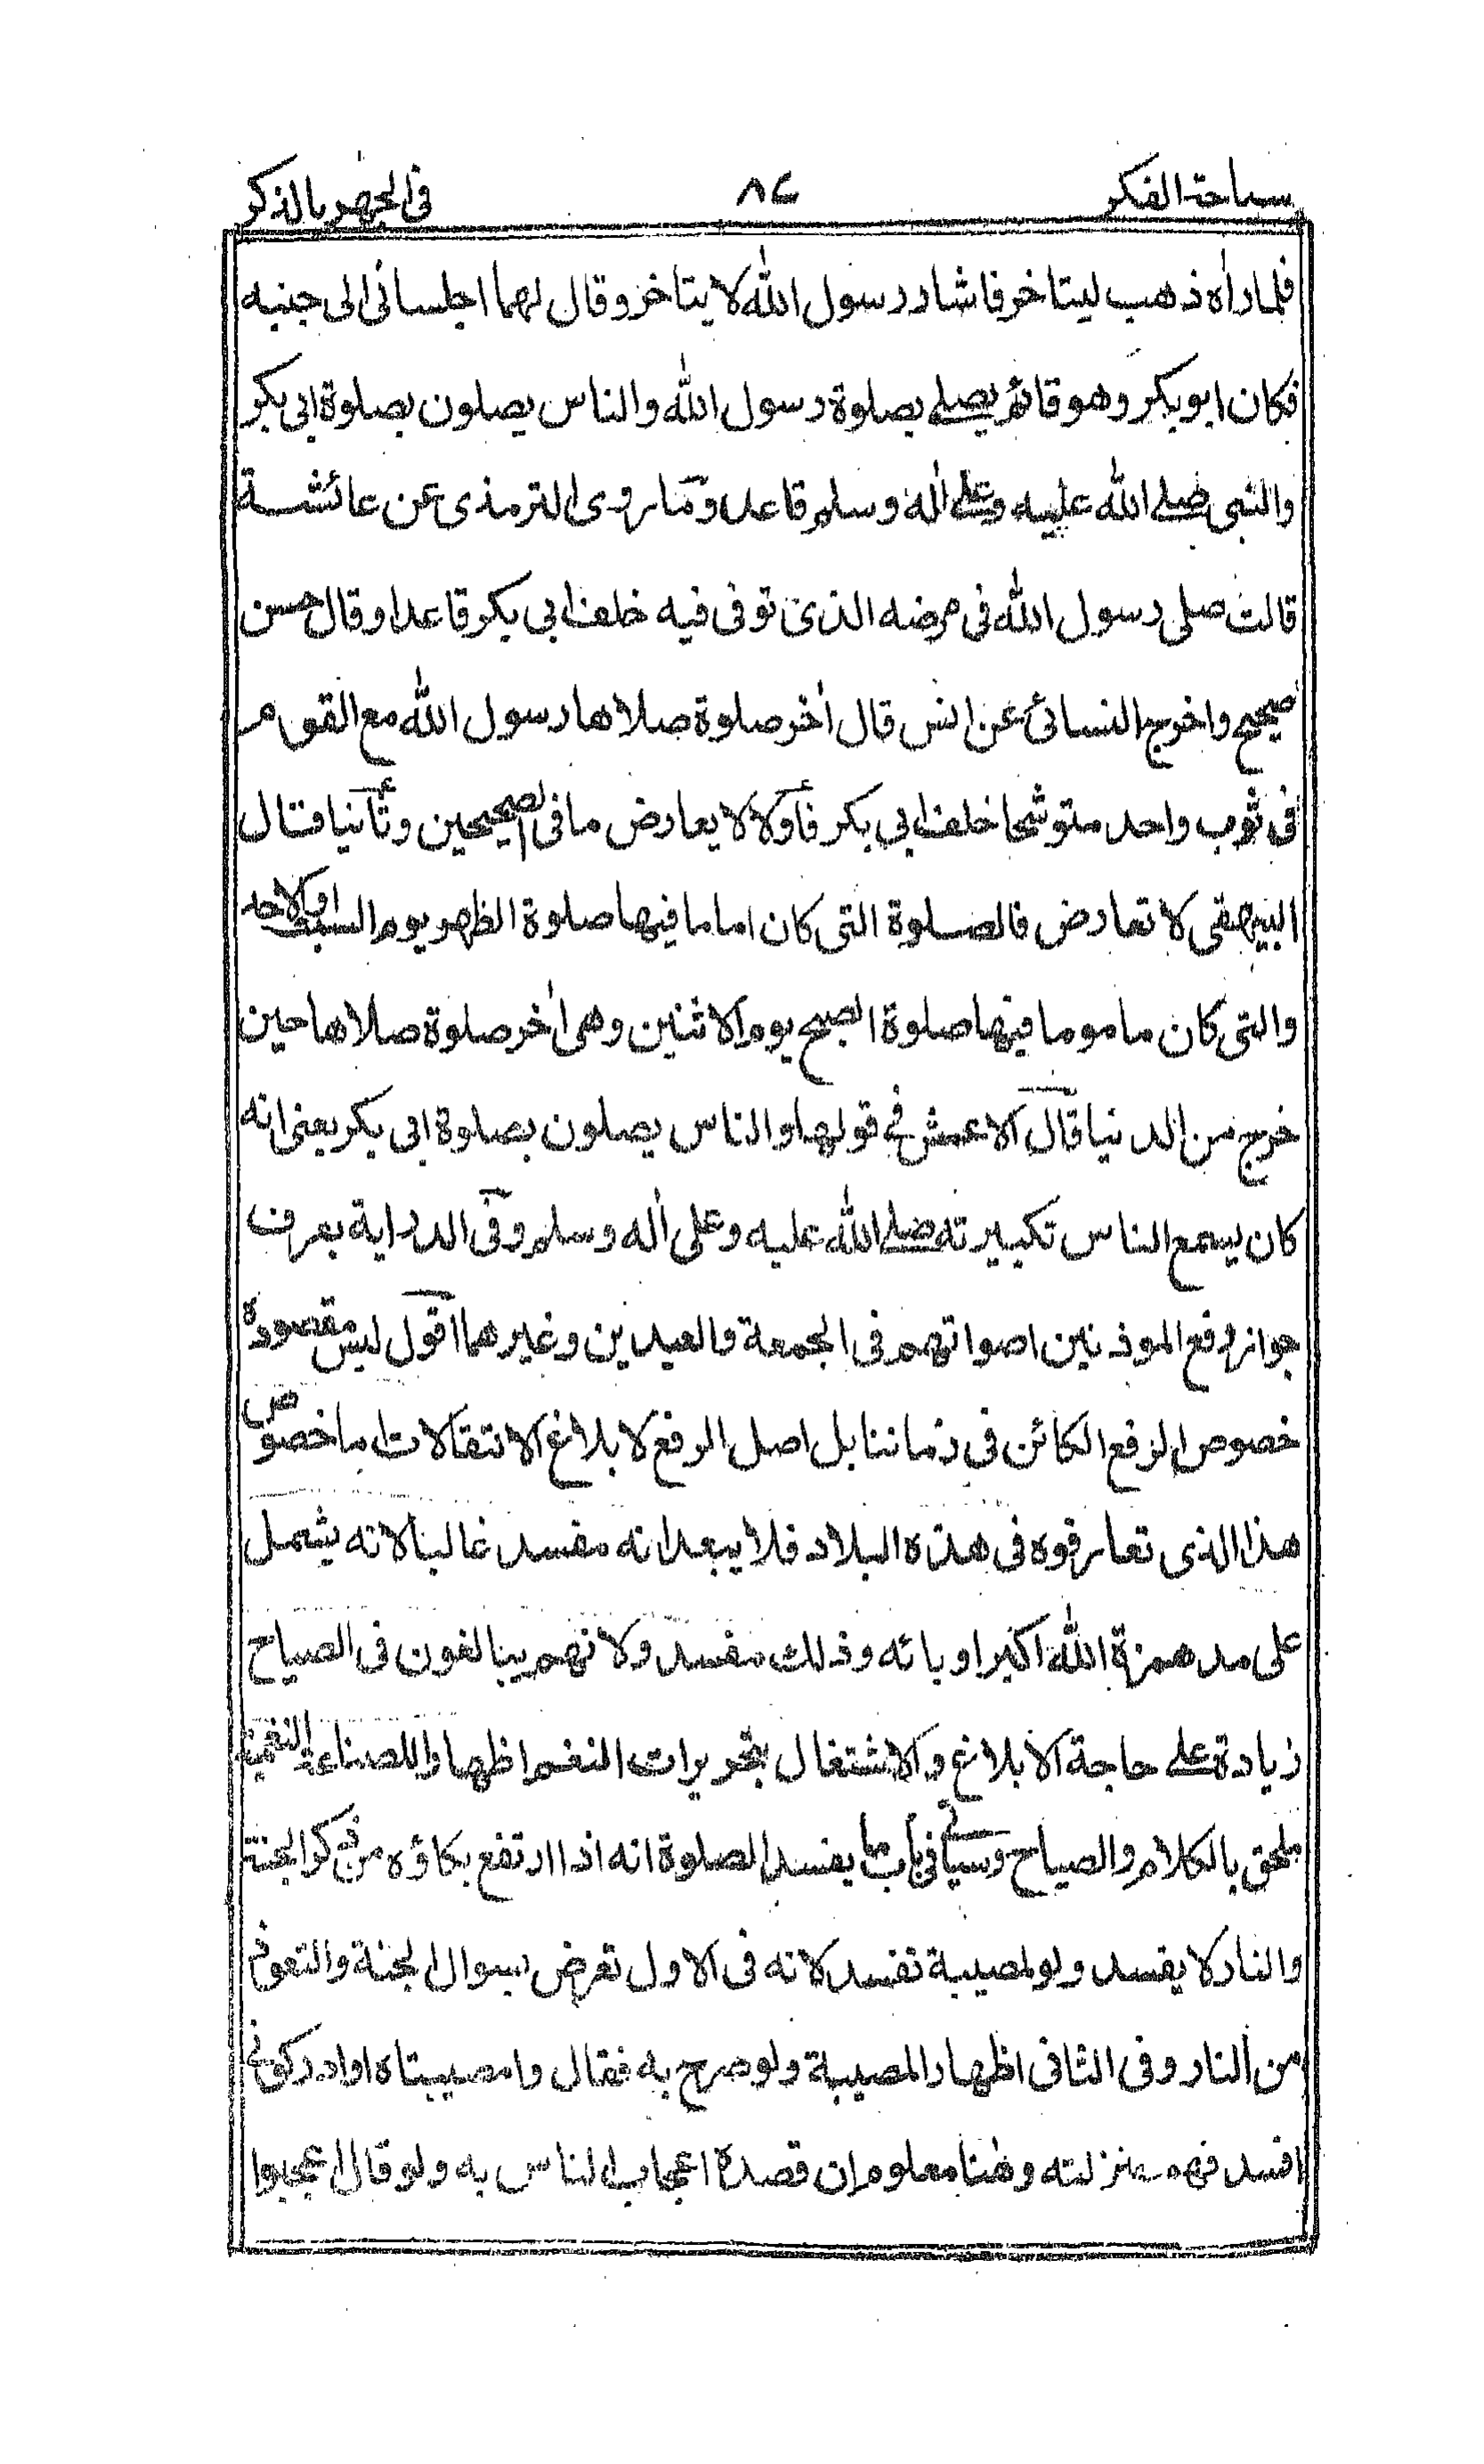 سباحة الفكر ٨٤ فى الجهر بالذكر
فلما راٰه ذهب ليتاخر فاشار رسول الله لا يتاخر وقال لهما اجلسانى الى جنبه
فكان ابو بكر وهو قائم يصلے بصلوة رسول الله والناس يصلون بصلوة ابى بكر
والنبى صلے الله عليه وعلے اٰله وسلم قاعد وما روى الترمذى عن عائشة
قالت صلى رسول الله فى مرضه الذى توفى فيه خلف ابى بكر قاعدا وقال حسن
صحيح واخرج النسائى عن انس قال اٰخر صلوة صلاها رسول الله مع القوم
فى ثوب واحد متوشحا خلف ابى بكر فاولا لا يعارض ما فى الصحيحين وثانيا قال
البيهقى لا تعارض فالصلوة التى كان اماما فيها صلوة الظهر يوم السبت او الاحد
والتى كان ماموما فيها صلوة الصبح يوم الاثنين وهى اٰخر صلوة صلاها حين
خرج من الدنيا قال الاعمش فے قولها والناس يصلون بصلوة ابى بكر يعنى انه
كان يسمع الناس تكبيرته صلے الله عليه وعلى اٰله وسلم وفى الدراية يعرف
جواز رفع الموذنين اصواتهم فى الجمعة والعيدين وغيرهما اقول ليس مقصوده
خصوص الرفع الكائن فى زماننا بل اصل الرفع لابلاغ الانتقالات اما خصوص
هذا الذى تعارفوه فى هذه البلاد فلا يبعد انه مفسد غالبا لانه يشمل
على مد همزة الله اكبر او بائه وذلك مفسد ولانهم يبالغون فى الصياح
زيادة علے حاجة الابلاغ والاشتغال بتحريرات النغم اظهارا للصناعة النغمية
ملحق بالكلام والصياح وسياتى فى باب ما يفسد الصلوة انه اذا ارتفع بكاؤه من ذكر الجنة
والنار لا يفسد ولو لمصيبة تفسد لانه فى الاول تعرض بسوال الجنة والتعوذ
من النار وفى الثانى اظهار المصيبة ولو صرح به فقال وامصيبتاه او ادركونے
افسد فهو بمنزلته وهنا معلوم ان قصده اعجاب الناس به ولو قال اعجبوا